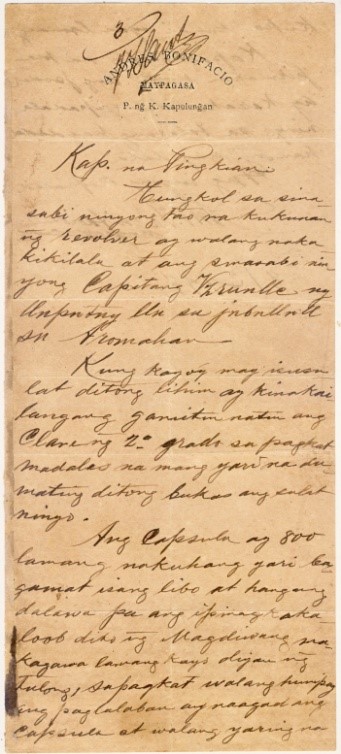 3
ANDRES BONIFACIO
MAYPAGASA
P. nĝ K. Kapulunĝan
Kap. na Pingkian:
Tungkol sa sina-
sabi ninyong tao na kukunan
ng revolver ay walang naka-
kikilala at ang sinasabi nin
yong Capitang
sa
sa Aromahan
Kung kayo'y mag iisusu
lat ditong lihim ay kinakai
langang gamitin natin ang
Clave ng 2º grado sapagkat
madalas na mang yari na du
mating ditong bukas ang sulat
ninyo.
Ang Capsula ay 800
lamang nakuhang yari ba
gamat isang libo at hangang
dalawa pa ang ipinagkaka
loob dito ng Magdiwang na
kagawa lamang kayo diyan ng
tulong, sapagkat walang humpay
ang paglalaban ay naagad ang
capsula at walang yaring na